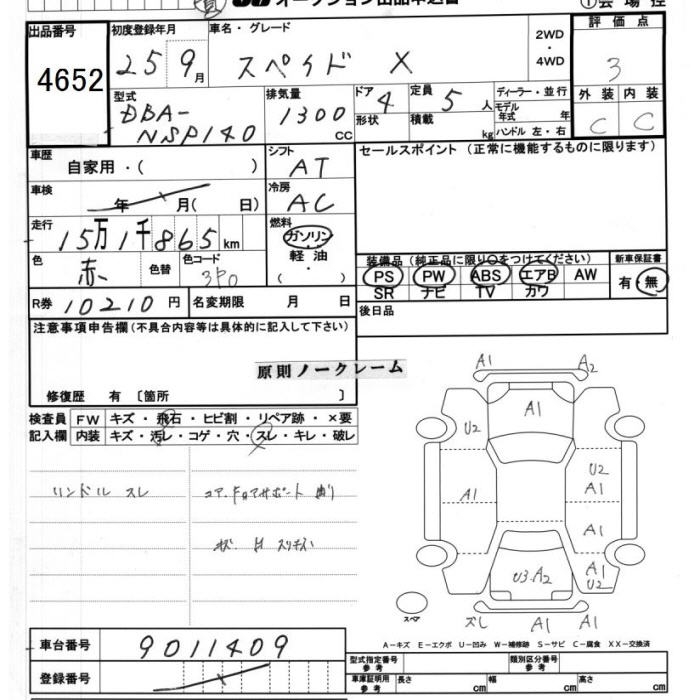 オークション出品申込書
① 会 場 控
出品番号
4652
初度登録年月
25 9月
車名・グレード
スペイド X
2WD
・
4WD
評 価 点
3
外 装 内 装
C C
型式
DBA-
NSP140
排気量
1300
CC
ドア 4
形状
定員 5 人
積載 kg
ディーラー・並行
モデル
年式 年
ハンドル 左・右
車歴
自家用・( )
シフト
AT
セールスポイント (正常に機能するものに限ります)
車検
年 月( 日)
冷房
AC
走行
15万1千865km
燃料
ガソリン
軽 油
・
( )
色
赤
色替
色コード
3P0
装備品(純正品に限り○をつけてください)
新車保証書
PS PW ABS エアB AW
SR ナビ TV カワ
有・無
R券 10210円
名変期限 月 日
後日品
注意事項申告欄(不具合内容等は具体的に記入して下さい)
原則ノークレーム
修復歴 有 〔箇所 〕
検査員 FW キズ・飛石・ヒビ割・リペア跡・×要
記入欄 内装 キズ・汚レ・コゲ・穴・スレ・キレ・破レ
A1 A2
A1
U2
U2
A1
A1
A1
A1
U2
U3.A2
スペア
ズレ A1 A1
A-キズ E-エクボ U-凹み W-補修跡 S-サビ C-腐食 XX-交換済
車台番号
9011409
登録番号
型式指定番号
参考
類別区分番号
参考
車庫証明用
参考
長さ cm 幅 cm 高さ cm